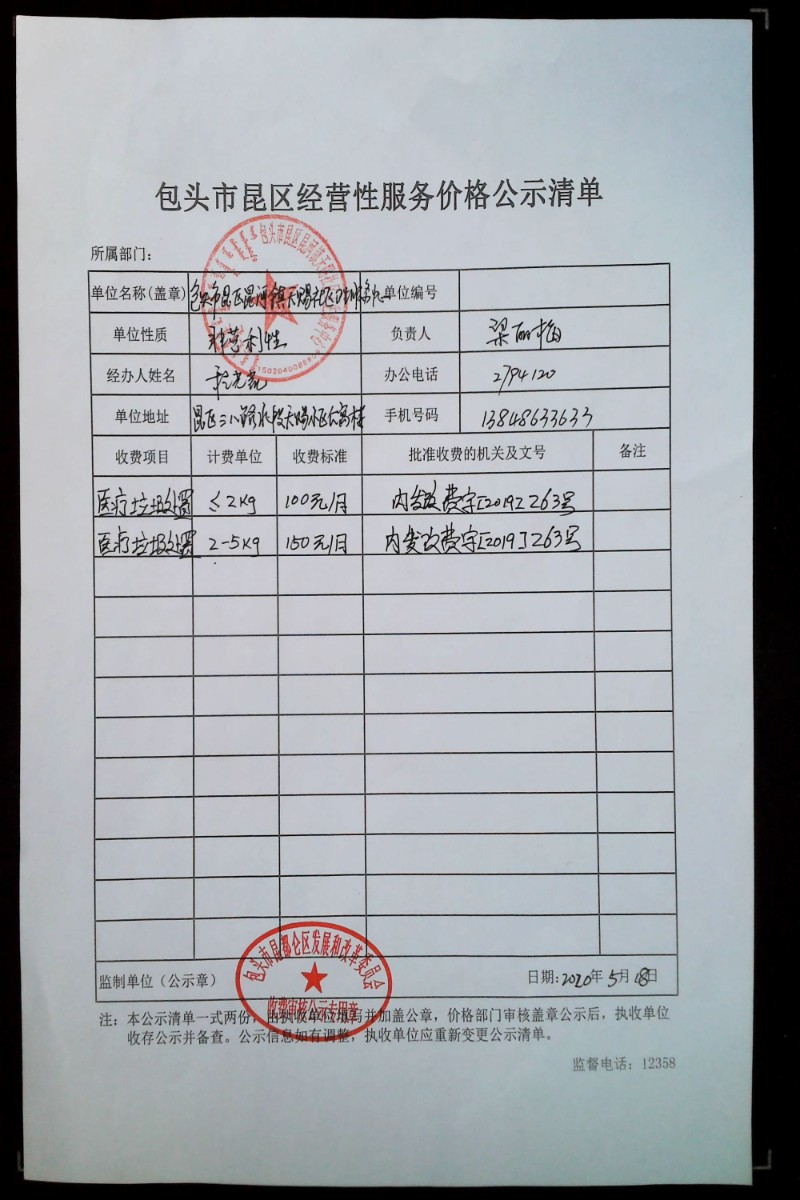 包头市昆区经营性服务价格公示清单
所属部门：
单位名称(盖章) 包头市昆区昆河镇天赐社区卫生服务中心 单位编号
单位性质 非营利性 负责人 梁丽梅
经办人姓名 办公电话 2794120
单位地址 昆区三八路 天赐小区 高栋 手机号码 13848633633
收费项目 计费单位 收费标准 批准收费的机关及文号 备注
医疗垃圾处置 ≤2kg 100元/月 内发改费字[2019]263号
医疗垃圾处置 2-5kg 150元/月 内发改费字[2019]263号
包头市昆都仑区发展和改革委员会
收费审核公示专用章
监制单位（公示章） 日期：2020年5月18日
注：本公示清单一式两份，由执收单位填写并加盖公章，价格部门审核盖章公示后，执收单位
收存公示并备查。公示信息如有调整，执收单位应重新变更公示清单。
监督电话：12358